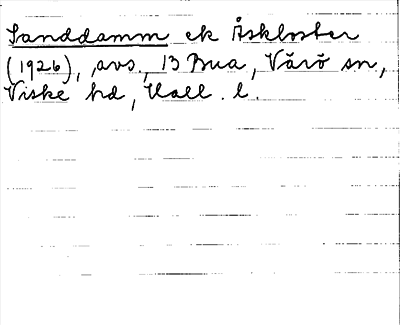 Sanddamm ek Åskloster
(1926), avs., 13 Bua, Värö sn,
Viske hd, Hall. l.